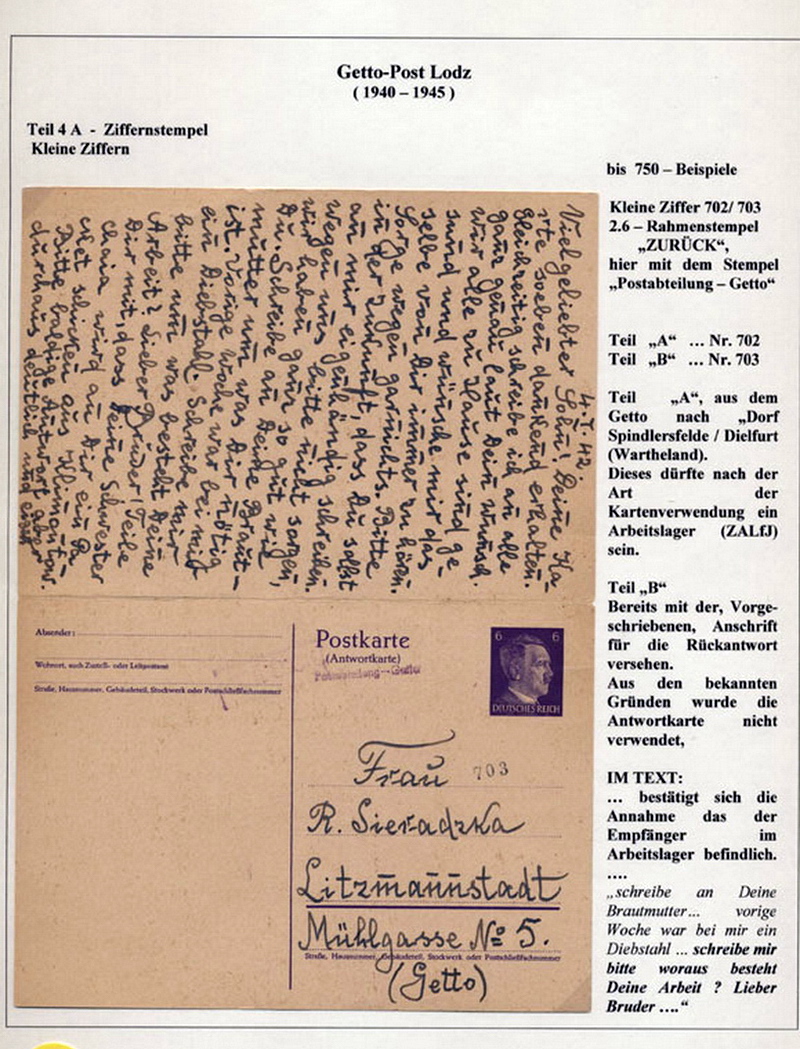 Getto-Post Lodz
( 1940 – 1945 )
Teil 4 A - Ziffernstempel
Kleine Ziffern
4.I.42.
Vielgeliebter Sohn! Deine Ka-
rte soeben dankend erhalten.
Gleichzeitig schreibe ich an alle
ganz genau laut Dein Wunsch.
Wir alle zu Hause sind ge
sund und wünsche mir das-
selbe von Dir immer zu hören.
Sorge wegen garnichts. Bitte
in der Zukunft, dass Du sollst
an mir eigenhändig schreiben.
Wegen uns bitte nicht sorgen,
wir haben ganz so gut wie
Du. Schreibe an Deine Braut-
mutter um was Dir nötig
ist. Vorige Woche war bei mir
ein Diebstahl. Schreibe mir
bitte um was besteht Deine
Arbeit? Lieber Bruder! Teile
Dir mit, dass Deine Schwester
Chaia wird an Dir ein Pa
cket schicken aus Klimontow.
Bitte baldige Antwort aber
durchaus deutlich und
Absender:
Wohnort, auch Zustell- oder Leitpostamt
Straße, Hausnummer, Gebäudeteil, Stockwerk oder Postschließfachnummer
Postkarte
(Antwortkarte)
Postabteilung - Getto
6 6
DEUTSCHES REICH
Frau 703
R. Sieradzka
Litzmannstadt
Mühlgasse № 5.
Straße, Hausnummer, Gebäudeteil, Stockwerk oder Postschließfachnummer
(Getto)
bis 750 – Beispiele
Kleine Ziffer 702/ 703
2.6 – Rahmenstempel
„ZURÜCK“,
hier mit dem Stempel
„Postabteilung – Getto“
Teil „A“ ... Nr. 702
Teil „B“ ... Nr. 703
Teil „A“, aus dem
Getto nach „Dorf
Spindlersfelde / Dielfurt
(Wartheland).
Dieses dürfte nach der
Art der
Kartenverwendung ein
Arbeitslager (ZALfJ)
sein.
Teil „B“
Bereits mit der, Vorge-
schriebenen, Anschrift
für die Rückantwort
versehen.
Aus den bekannten
Gründen wurde die
Antwortkarte nicht
verwendet,
IM TEXT:
... bestätigt sich die
Annahme das der
Empfänger im
Arbeitslager befindlich.
....
„schreibe an Deine
Brautmutter... vorige
Woche war bei mir ein
Diebstahl ... schreibe mir
bitte woraus besteht
Deine Arbeit ? Lieber
Bruder ....“